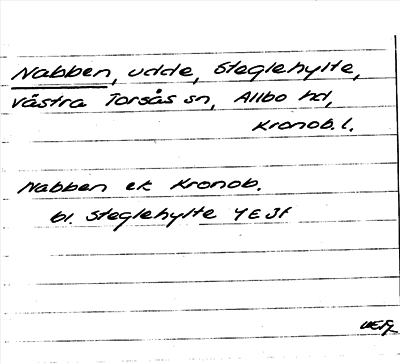 Nabben, udde, Steglehylte,
Västra Torsås sn, Allbo hd,
Kronob. l.
Nabben ek Kronob.
bl. Steglehylte 4E3f